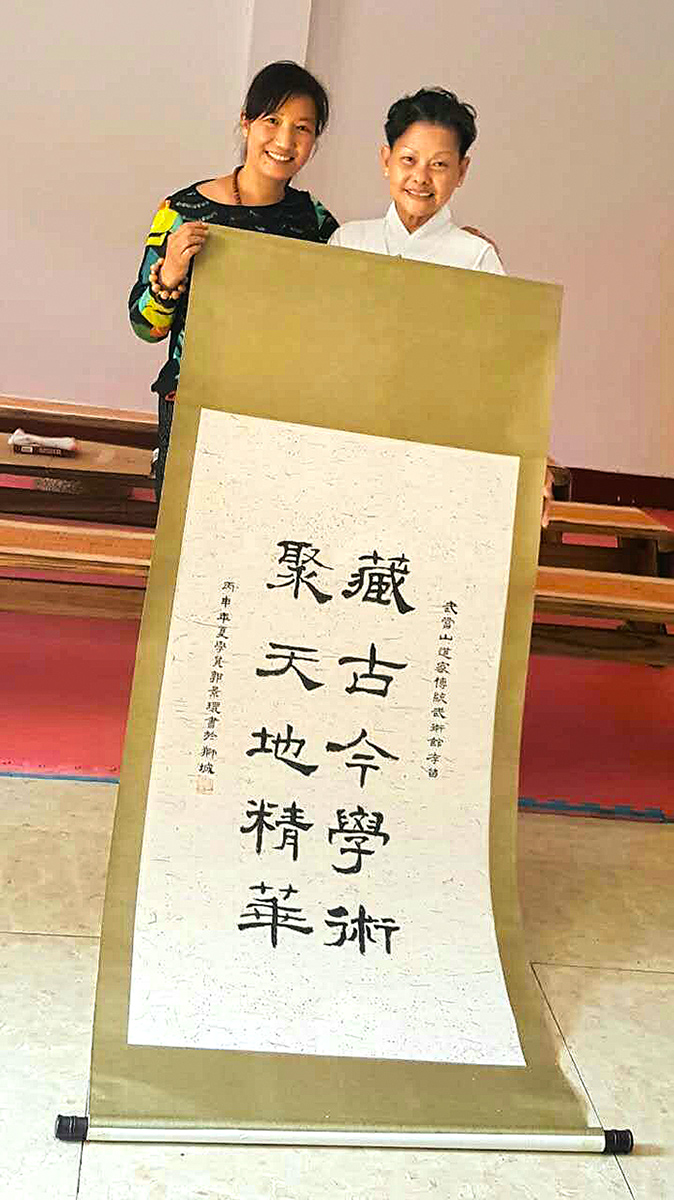 武當山道家傳統武術館
藏古今學術
聚天地精華
丙申年夏學郭景環書於獅城